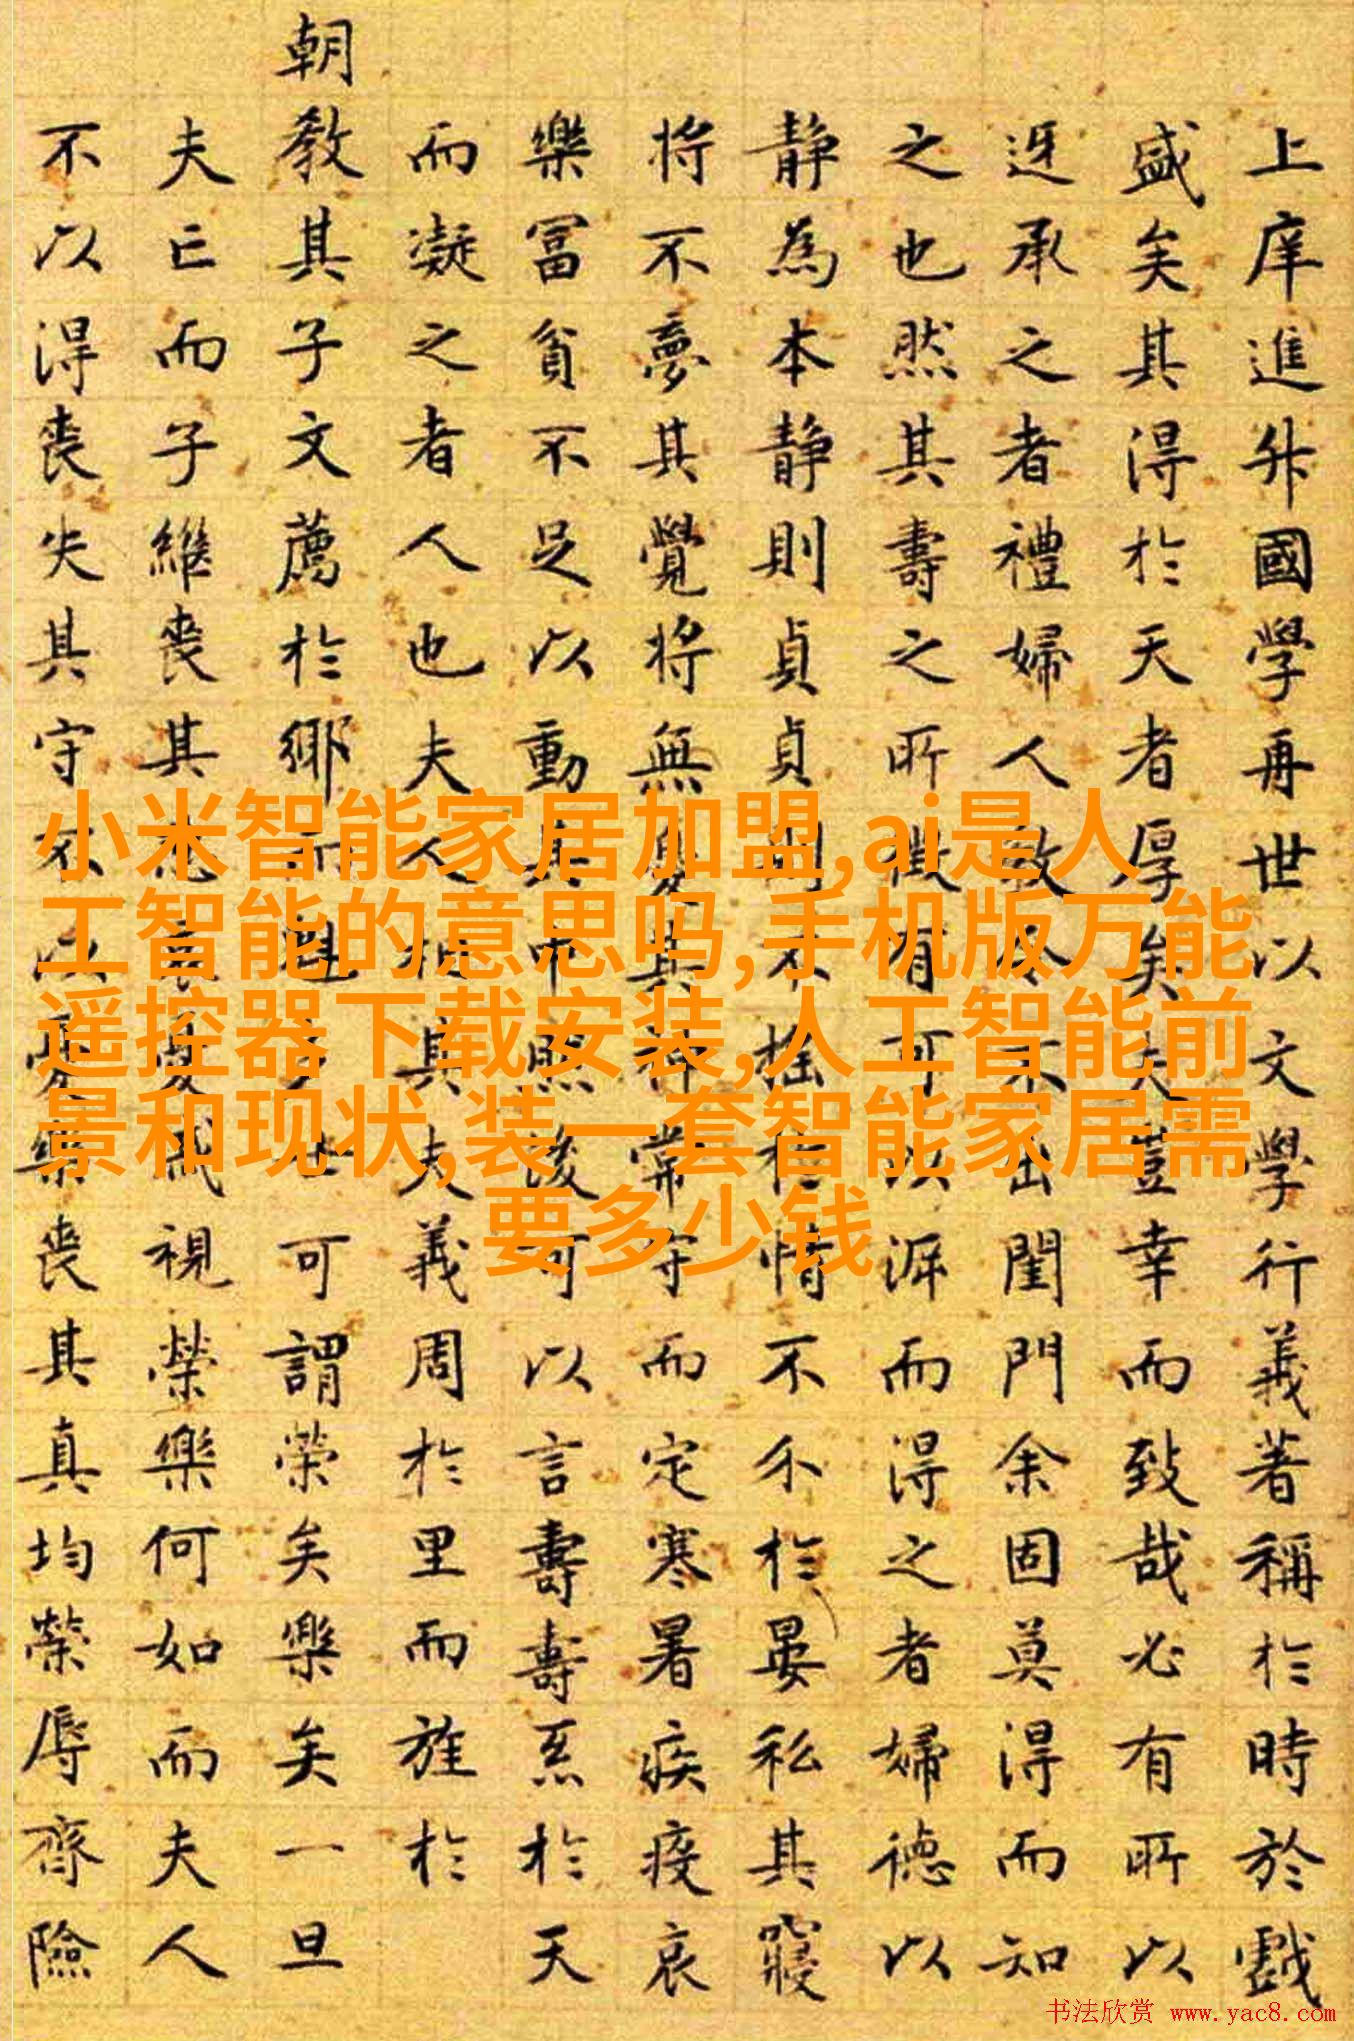 上庠進升國學再世以文學行義著稱於時於戲
盛矣其得於天者厚矣夫豈幸而致哉必有所以
迓承之者禮婦人教令不出閨門余固莫得而知
之也然其壽之所徵有可以涯而得之者婦德以
靜為本靜則貞貞則不搖於情不介於晏私其寢
將不夢其覺將無憂其神常守而定寒暑疾疫哀
樂冨貧不足以動其中然後可以言壽壽系於天
而凝之者人也夫人相其夫義周於里而旌於
朝教其子文薦於鄉而可謂榮矣樂矣一旦
夫亡而子繼喪其悲哀憂戚視榮樂何如而夫人
不以得喪失其守不以憂樂喪其真均榮辱齊險
小米智能家居加盟,ai是人
工智能的意思吗,手机版万能
遥控器下载安装,人工智能前
景和现状,装一套智能家居需
要多少钱
书法欣赏 www.yac8.com